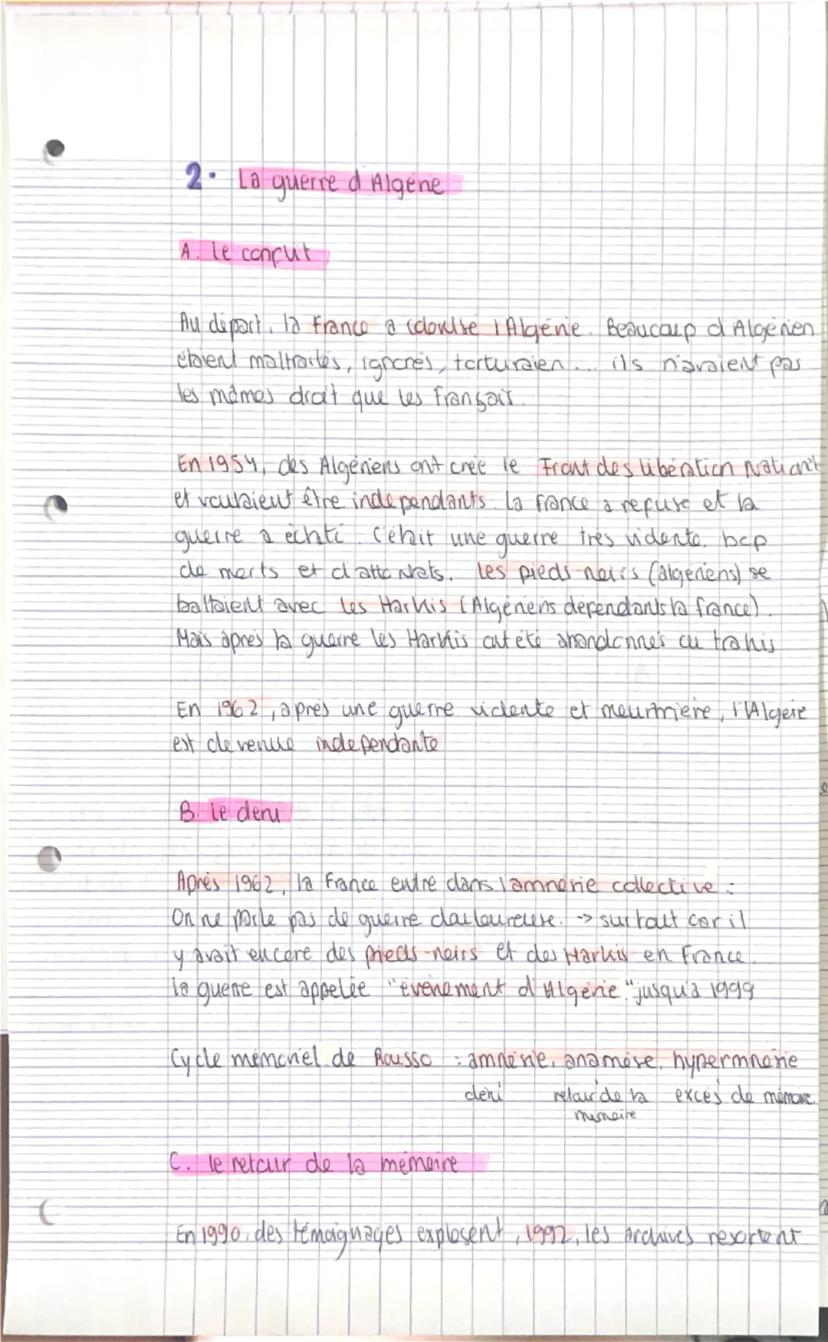 2. La guerre d'Algérie
A. Le conflit
Au départ, la France a colonisé l'Algérie. Beaucoup d'Algérien
étaient maltraités, ignorés, torturaien... ils n'avaient pas
les mêmes droit que les français.
En 1954, des Algériens ont crée le Front des libération National
et voulaient être indépendants. La France a refusé et la
guerre a éclaté. C'était une guerre très violente, bcp
de morts et d'attentats. Les pieds-noirs (algériens) se
battaient avec les Harkis (Algériens dépendants la france).
Mais après la guerre les Harkis ont été abandonnés ou trahis
En 1962, après une guerre violente et meurtrière, l'Algérie
est devenue indépendante
B. Le deni
Après 1962, la France entre dans l'amnésie collective :
On ne parle pas de guerre douloureuse. -> surtout car il
y avait encore des pieds-noirs et des Harkis en France.
la guerre est appelée "évènement d'Algérie" jusqu'à 1999
Cycle mémoriel de Rousso : amnésie, anamèse, hypermnésie
déni retour de la excès de mémoire
mémoire
C. le retour de la mémoire
En 1990, des témoignages explosent, 1992, les archives resortent